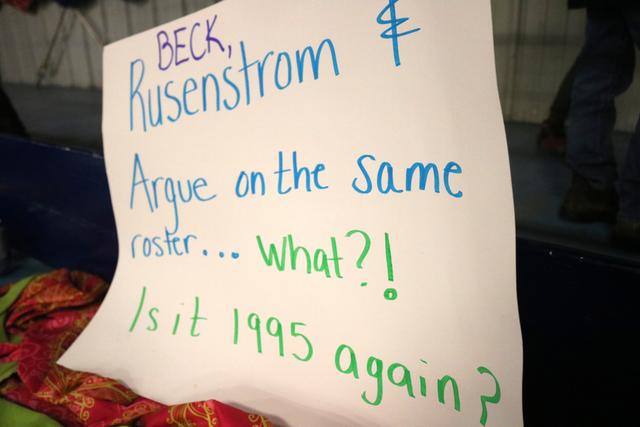 BECK,
Rusenstrom &
Argue on the same
roster... What?!
Is it 1995 again?